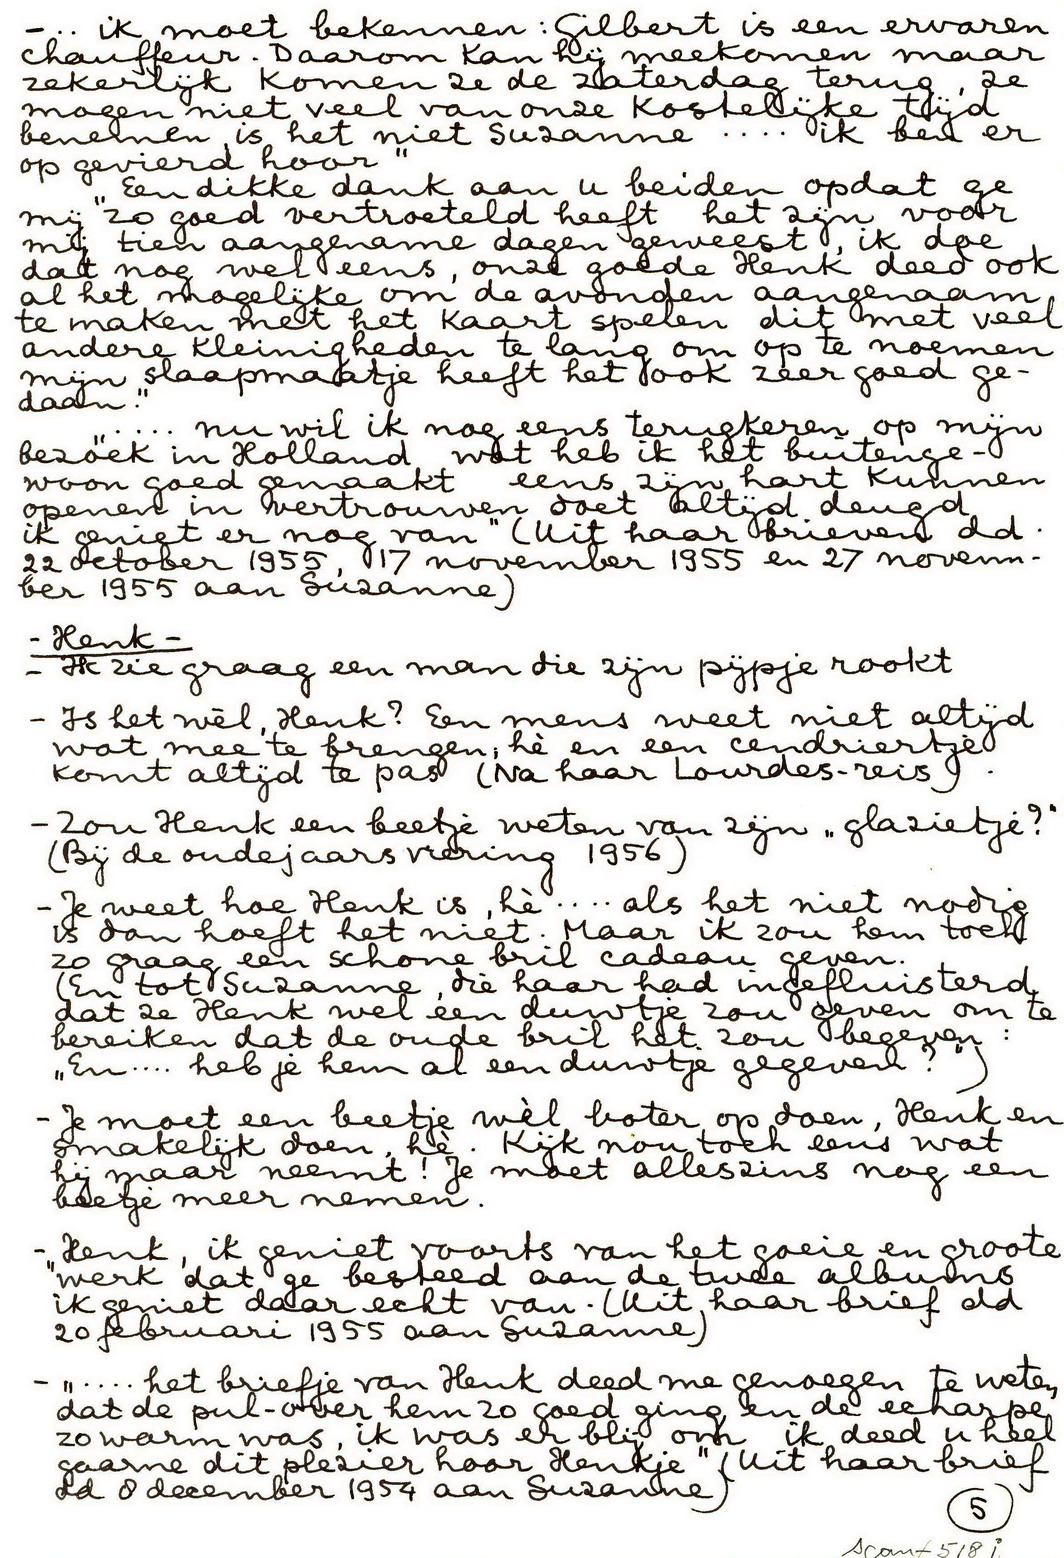 -... ik moet bekennen: Gilbert is een ervaren
chauffeur. Daarom kan hij meekomen maar
zekerlijk komen ze de zaterdag terug, ze
mogen niet veel van onze kostelijke tijd
benemen, is het niet Suzanne .... ik ben er
op gevierd hoor"
„Een dikke dank aan u beiden opdat ge
mij zo goed vertroeteld heeft het zijn voor
mij tien aangename dagen geweest, ik doe
dat nog wel eens, onze goede Henk deed ook
al het mogelijke om de avonden aangenaam
te maken met het kaart spelen dit met veel
andere kleinigheden te lang om op te noemen
mijn slaapmaatje heeft het ook zeer goed ge-
daan."
„.... nu wil ik nog eens terugkeren op mijn
bezoek in Holland, wat heb ik het buitenge-
woon goed gemaakt eens zijn hart kunnen
openen in vertrouwen doet altijd deugd
ik geniet er nog van" (Uit haar brieven dd.
22 october 1955, 17 november 1955 en 27 novem-
ber 1955 aan Suzanne)
- Henk -
- Ik zie graag een man die zijn pijpje rookt
- Is het wèl, Henk? Een mens weet niet altijd
wat mee te brengen, hè en een cendriertje
komt altijd te pas (Na haar Lourdes-reis).
- Zou Henk een beetje weten van zijn „glazietje?"
(Bij de oudejaarsviering 1956)
- Je weet hoe Henk is, hè .... als het niet nodig
is dan hoeft het niet. Maar ik zou hem toch
zo graag een schone bril cadeau geven.
(En tot Suzanne, die haar had ingefluisterd
dat ze Henk wel een duwtje zou geven om te
bereiken dat de oude bril het zou begeven:
„En.... heb je hem al een duwtje gegeven?")
- Je moet een beetje wèl boter op doen, Henk en
smakelijk doen, hè. Kijk nou toch eens wat
hij maar neemt! Je moet alleszins nog een
beetje meer nemen.
- „Henk, ik geniet voorts van het goeie en groote
werk dat ge besteed aan de twee albums
ik geniet daar echt van. (Uit haar brief dd
20 februari 1955 aan Suzanne)
- „.... het briefje van Henk deed me genoegen te weten,
dat de pul-over hem zo goed ging, en de echarpe
zo warm was, ik was er blij om ik deed u heel
gaarne dit plezier hoor Henkje" (Uit haar brief
dd 8 december 1954 aan Suzanne)
5
scan + 518 i